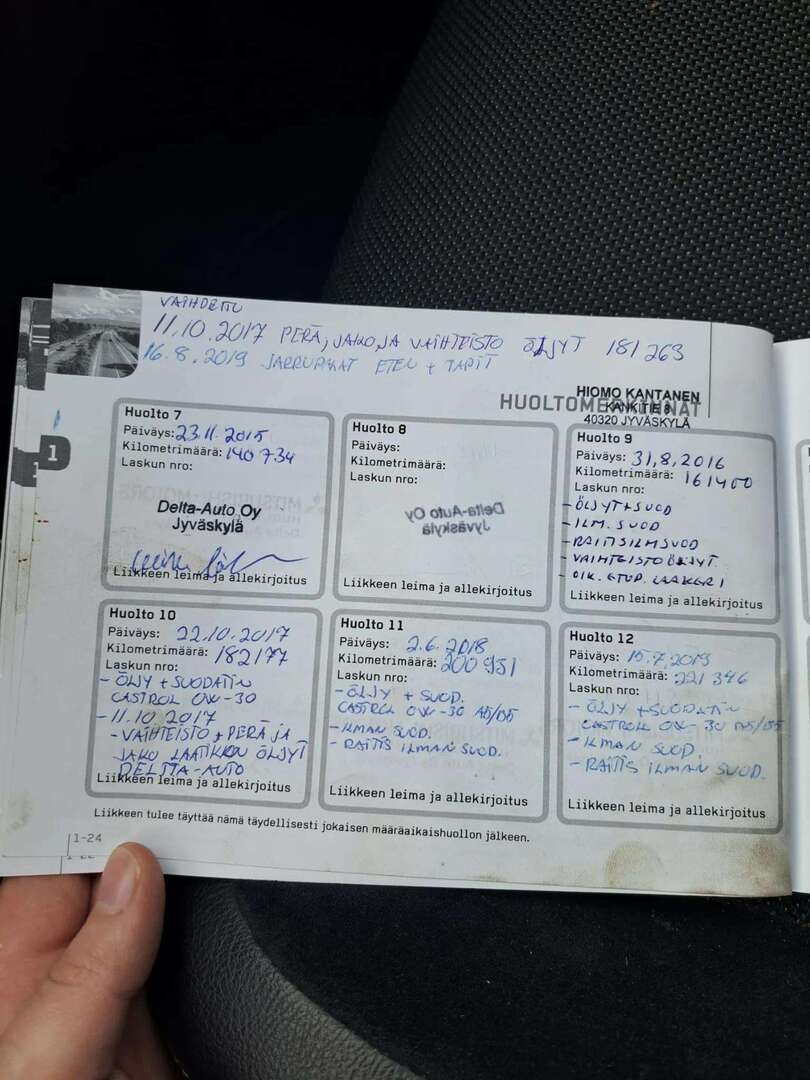 VAIHDETTU
11.10.2017 PERÄ, JAKO, JA VAIHTEISTO ÖLJYT 181 263
16.8.2019 JARRUPALAT ETEEN + TAPIT
HUOLTOMERKINNÄT
HIOMO KANTANEN
KANKITIE 8
40320 JYVÄSKYLÄ
1
Huolto 7
Päiväys: 23.11.2015
Kilometrimäärä: 140 734
Laskun nro:
Delta-Auto Oy
Jyväskylä
Liikkeen leima ja allekirjoitus
Huolto 8
Päiväys:
Kilometrimäärä:
Laskun nro:
Delta-Auto Oy
Jyväskylä
Liikkeen leima ja allekirjoitus
Huolto 9
Päiväys: 31,8,2016
Kilometrimäärä: 161400
Laskun nro:
- ÖLJYT+SUOD
- ILM. SUOD
- RAITISILMSUOD
- VAIHTEISTO ÖLJYT.
- OIK. ETUP. LAAKERI
Liikkeen leima ja allekirjoitus
Huolto 10
Päiväys: 22.10.2017
Kilometrimäärä: 182177
Laskun nro:
- ÖLJY + SUODATIN
CASTROL 0W-30
- 11.10 2017
- VAIHTEISTO + PERÄ JA
JAKO LAATIKON ÖLJYT
DELTTA-AUTO
Liikkeen leima ja allekirjoitus
Huolto 11
Päiväys: 2.6.2018
Kilometrimäärä: 200 931
Laskun nro:
- ÖLJY + SUOD.
CASTROL 0W-30 A5/B5
- ILMAN SUOD.
- RAITIS ILMAN SUOD.
Liikkeen leima ja allekirjoitus
Huolto 12
Päiväys: 15.7.2019
Kilometrimäärä: 221 346
Laskun nro:
- ÖLJY + SUODATIN
CASTROL 0W-30 A5/B5
- ILMAN SUOD.
- RAITIS ILMAN SUOD.
Liikkeen leima ja allekirjoitus
Liikkeen tulee täyttää nämä täydellisesti jokaisen määräaikaishuollon jälkeen.
1-24